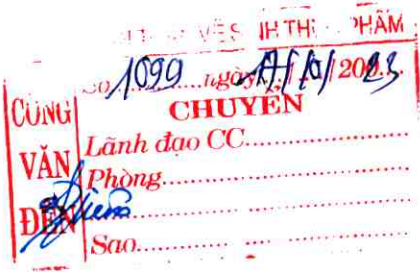 VỆ SINH THỰC PHẨM
Số 1099 ngày 17/10/2023
CÔNG VĂN ĐẾN
CHUYỂN
Lãnh đạo CC
Phòng
Sao